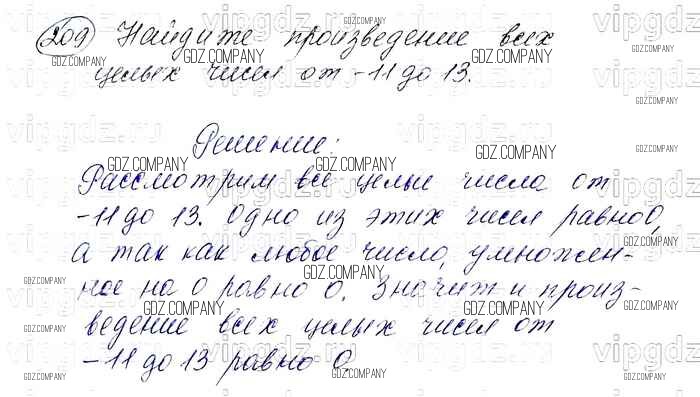 209 Найдите произведение всех
целых чисел от -11 до 13.
Решение:
Рассмотрим все целые числа от
-11 до 13. Одно из этих чисел равно 0,
а так как любое число, умножен-
ное на 0 равно 0. Значит и произ-
ведение всех целых чисел от
-11 до 13 равно 0.